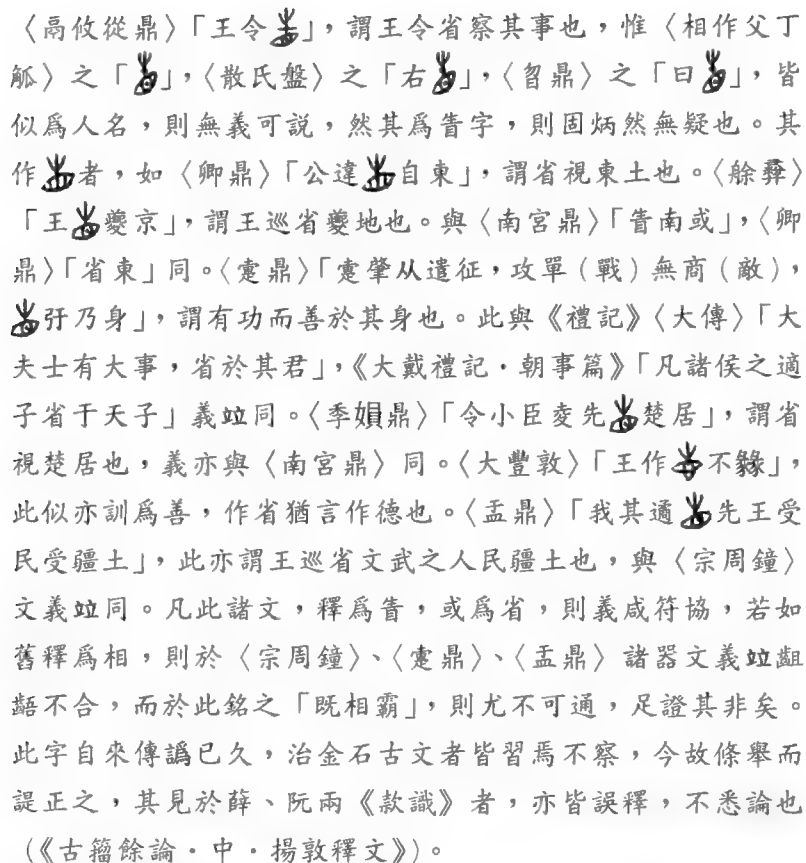 〈鬲攸從鼎〉「王令」，謂王令省察其事也，惟〈相作父丁
觚〉之「」，〈散氏盤〉之「右」，〈曶鼎〉之「曰」，皆
似爲人名，則無義可説，然其爲眚字，則固炳然無疑也。其
作者，如〈卿鼎〉「公違自東」，謂省視東土也。〈艅彝〉
「王夔京」，謂王巡省夔地也。與〈南宮鼎〉「眚南或」，〈卿
鼎〉「省東」同。〈鼎〉「肇从遣征，攻單（戰）無商（敵），
㺱乃身」，謂有功而善於其身也。此與《禮記》〈大傳〉「大
夫士有大事，省於其君」，《大戴禮記．朝事篇》「凡諸侯之適
子省于天子」義竝同。〈季娟鼎〉「令小臣夌先楚居」，謂省
視楚居也，義亦與〈南宮鼎〉同。〈大豐敦〉「王作不」，
此似亦訓爲善，作省猶言作德也。〈盂鼎〉「我其遹先王受
民受疆土」，此亦謂王巡省文武之人民疆土也，與〈宗周鐘〉
文義竝同。凡此諸文，釋爲眚，或爲省，則義咸符協，若如
舊釋爲相，則於〈宗周鐘〉、〈鼎〉、〈盂鼎〉諸器文義竝齟
齬不合，而於此銘之「既相霸」，則尤不可通，足證其非矣。
此字自來傳譌已久，治金石古文者皆習焉不察，今故條舉而
諟正之，其見於薛、阮兩《款識》者，亦皆誤釋，不悉論也
（《古籀餘論．中．揚敦釋文》）。